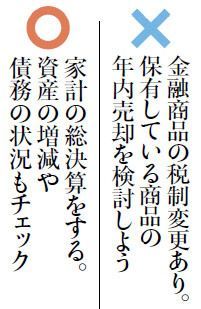 金融商品の税制変更あり。
保有している商品の
年内売却を検討しよう
家計の総決算をする。
資産の増減や
債務の状況もチェック